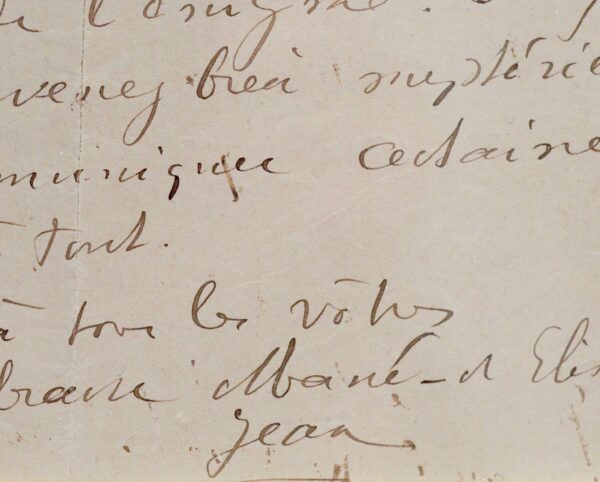 de l'énigme.
venez bien mystérie
muniquer certaine
tout.
à tous les vôtres
brasse Mané - et Elis
Jean